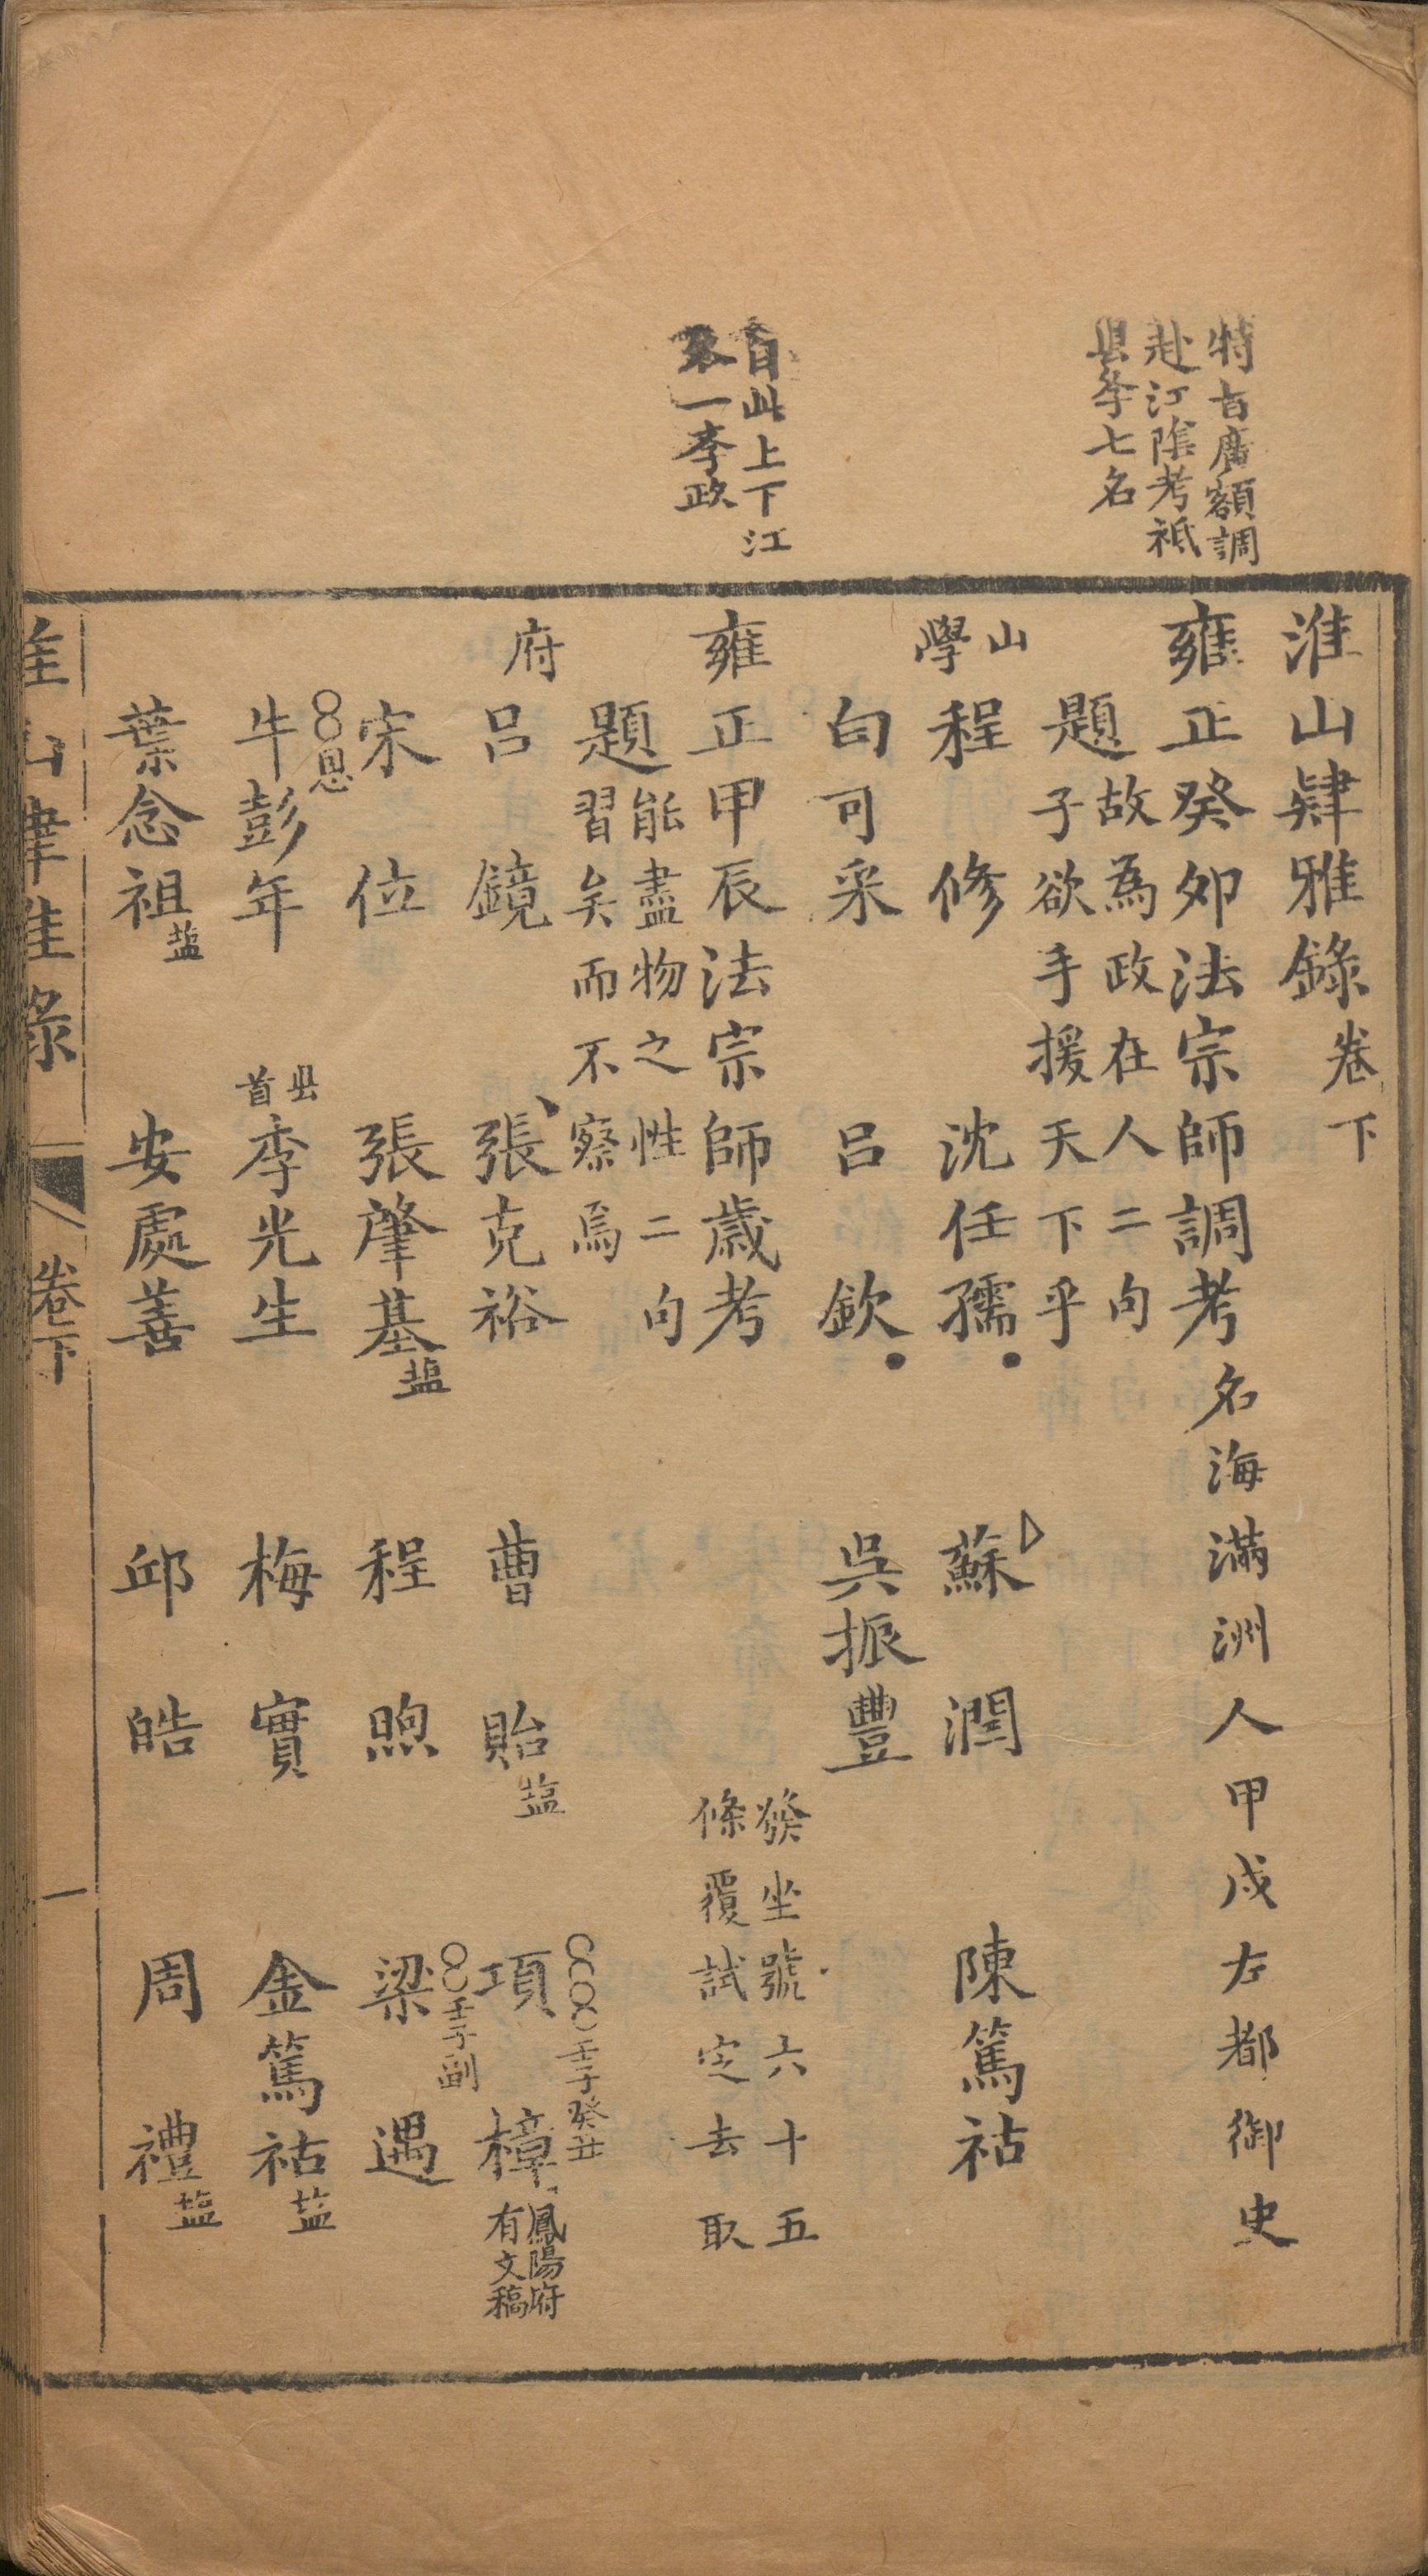 特旨廣額調
赴江陰考祗
縣學七名
自此上下江
不一李政
淮山肄雅錄卷下
雍正癸卯法宗師調考名海滿洲人甲戌左都御史
題故為政在人二句
子欲手援天下乎
山學
程修 沈任孺 蘇潤 陳篤祜
白可采 呂欽 吳振豐
雍正甲辰法宗師歲考發坐號六十五
條覆試定去取
題能盡物之性二句
習矣而不察焉
府
呂鏡 張克裕 曹貽盐 項樟鳳陽府
有文稿
○○○○壬子癸丑
宋位 張肇基盐 程煦 梁遇
○○壬子副
○○恩
牛彭年 縣首李光生 梅實 金篤祜盐
葉念祖盐 安處善 邱皓 周禮盐
淮山肄雅錄 卷下 一